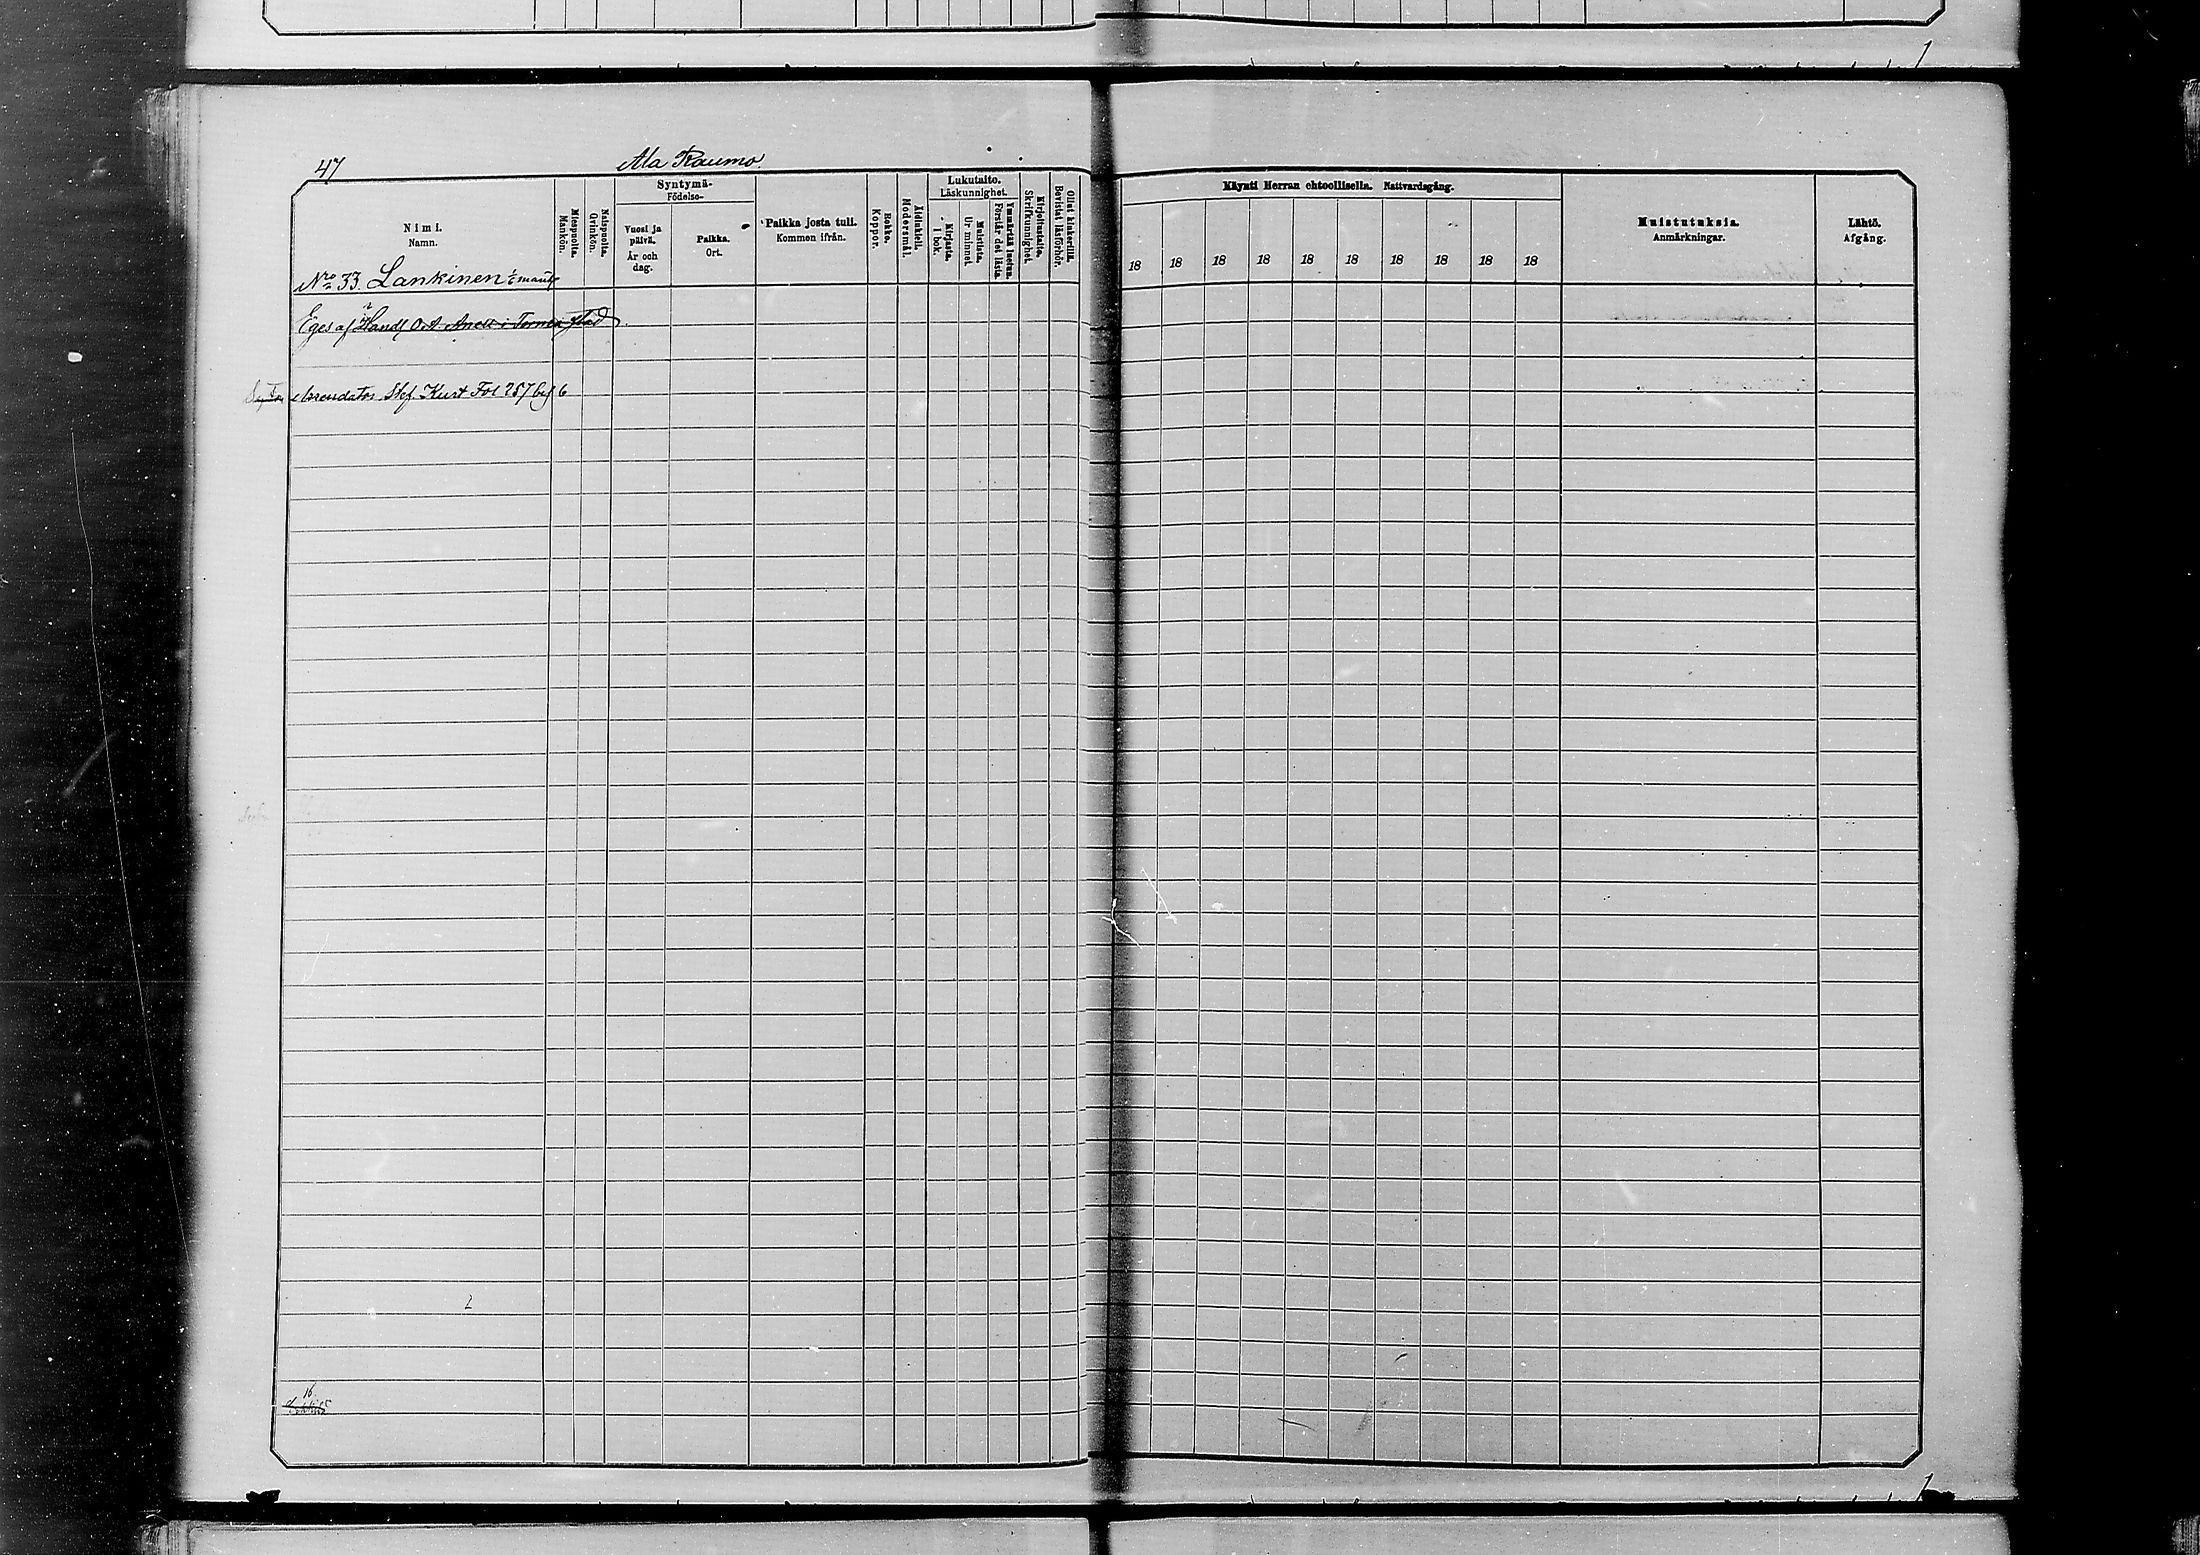 47
Ala Raumo.
Nimi.
Namn.
Miespuolia.
Mankön.
Naispuolia.
Qvinkön.
Syntymä-
Födelse-
Vuosi ja
päivä.
År och
dag.
Paikka.
Ort.
Paikka josta tuli.
Kommen ifrån.
Rokko.
Koppor.
Äidinkieli.
Modersmål.
Lukutaito.
Läskunnighet.
Kirjasta.
I bok.
Muistista.
Ur minnet.
Ymmärtää luetun.
Förstår det lästa.
Kirjoitustaito.
Skrifkunnighet.
Ollut kinkerillä.
Bevistat läsförhör.
Käynti Herran ehtoollisella. Nattvardsgång.
18 18 18 18 18 18 18 18 18 18
Muistutuksia.
Anmärkningar.
Lähtö.
Afgång.
No 33. Lankinen
Eges af Handl O. A. i Torneå stad
Arrendator Stef. Kurt Fol 257
16
1